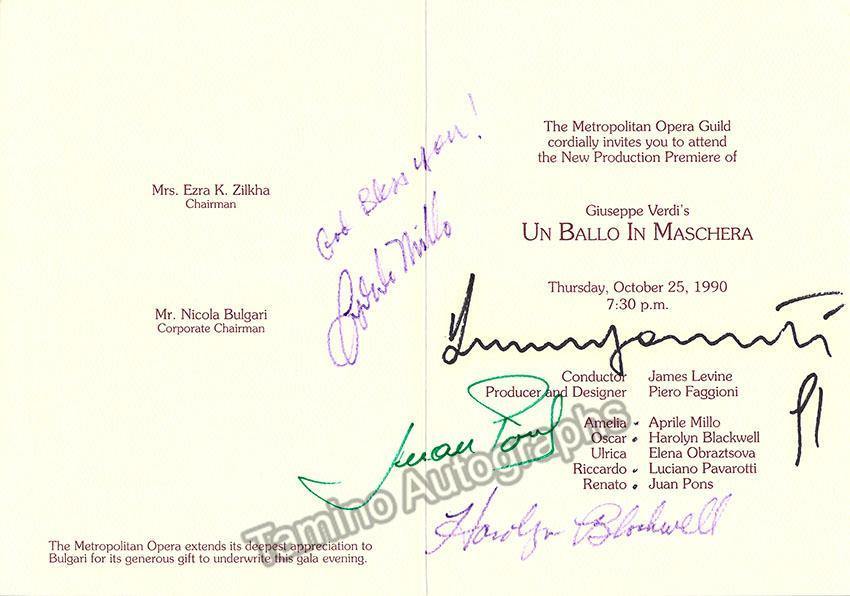 Mrs. Ezra K. Zilkha
Chairman
Mr. Nicola Bulgari
Corporate Chairman
God Bless you!
Aprile Millo
The Metropolitan Opera extends its deepest appreciation to
Bulgari for its generous gift to underwrite this gala evening.
The Metropolitan Opera Guild
cordially invites you to attend
the New Production Premiere of
Giuseppe Verdi's
UN BALLO IN MASCHERA
Thursday, October 25, 1990
7:30 p.m.
Conductor James Levine
Producer and Designer Piero Faggioni
Amelia Aprile Millo
Oscar Harolyn Blackwell
Ulrica Elena Obraztsova
Riccardo Luciano Pavarotti
Renato Juan Pons
91
Juan Pons
Harolyn Blackwell
Tamino Autographs